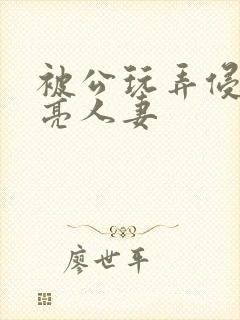 被公玩弄侵
亮人妻
廖世平